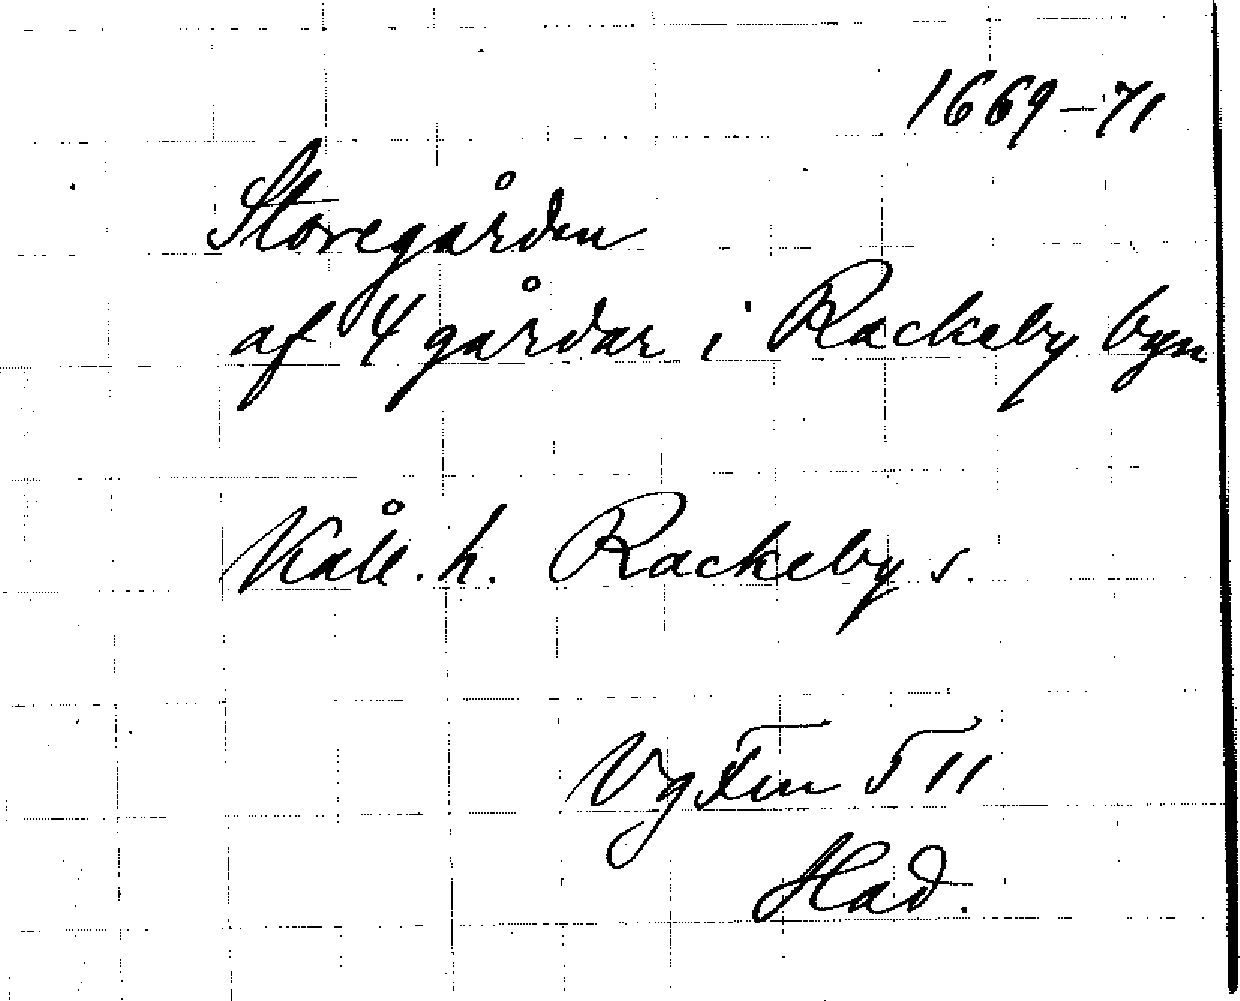 1669-71
Storegården
af 4 gårdar i Rackeby byn
Kåll. h. Rackeby s.
Vg 511
Had.